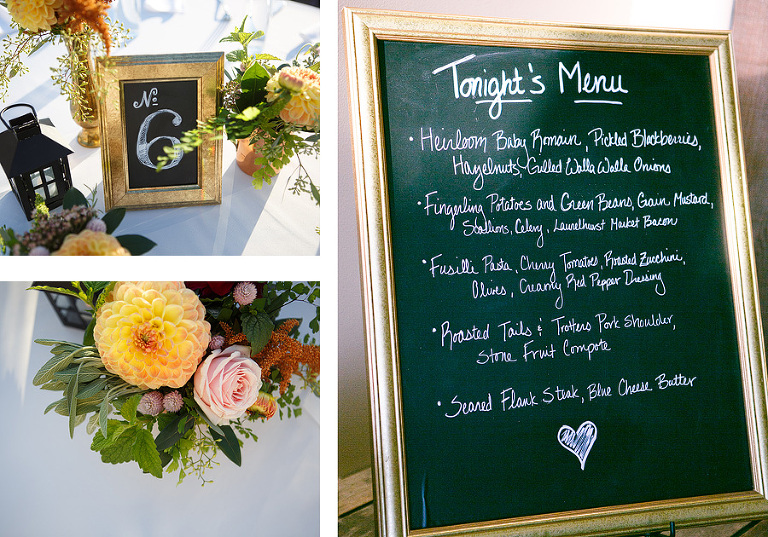 №
6
Tonight's Menu
· Heirloom Baby Romain, Pickled Blackberries,
Hazelnuts, Grilled Walla Walla Onions
· Fingerling Potatoes and Green Beans, Grain Mustard,
Scallions, Celery, Laurelhurst Market Bacon
· Fusilli Pasta, Cherry Tomatoes, Roasted Zucchini,
Olives, Creamy Red Pepper Dressing
· Roasted Tails & Trotters Pork Shoulder,
Stone Fruit Compote
· Seared Flank Steak, Blue Cheese Butter